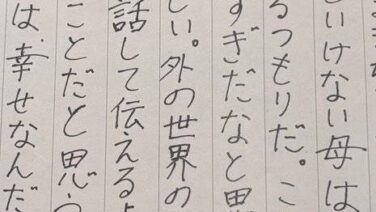 いけない母は
るつもりだ。こ
すぎだなと思
しい。外の世界の
話して伝えるよ
ことだと思う
は、幸せなんだ